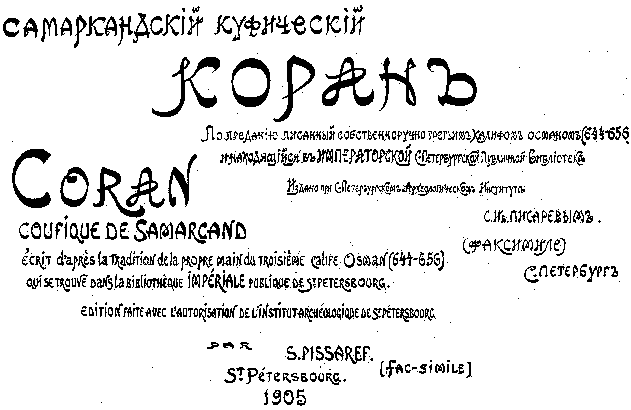 САМАРКАНДСКІЙ КУФИЧЕСКІЙ
КОРАНЪ
По преданію писанный собственноручно третьимъ Халифомъ Османомъ (644-656)
и находящійся въ ИМПЕРАТОРСКОЙ С.Петербургской Публичной Библіотекѣ
Издано при С.Петербургскомъ Археологическомъ Институтѣ
С.И. ПИСАРЕВЫМЪ.
(ФАКСИМИЛЕ)
С.ПЕТЕРБУРГЪ
CORAN
COUFIQUE DE SAMARCAND
écrit d'après la tradition de la propre main du troisième calife Osman (644-656)
qui se trouve dans la bibliothèque IMPÉRIALE publique de St. Petersbourg.
EDITION FAITE AVEC L'AUTORISATION DE L'INSTITUT ARCHÉOLOGIQUE DE St. PÉTERSBOURG
PAR
S. PISSAREF.
St. Pétersbourg. [fac-simile]
1905